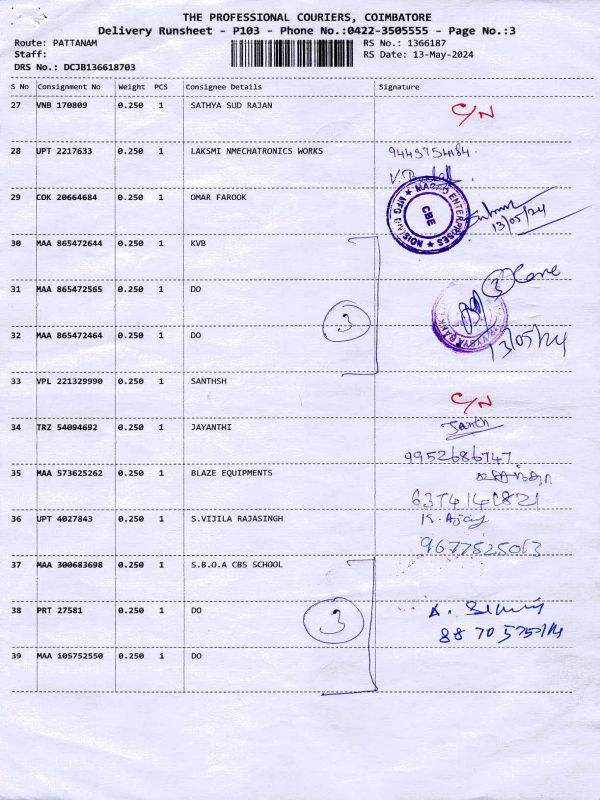 THE PROFESSIONAL COURIERS, COIMBATORE
Delivery Runsheet - P103 - Phone No.:0422-3505555 - Page No.:3
Route: PATTANAM RS No.: 1366187
Staff: RS Date: 13-May-2024
DRS No.: DCJB136618703
S No Consignment No Weight PCS Consignee Details Signature
27 VNB 170809 0.250 1 SATHYA SUD RAJAN C/N
28 UPT 2217633 0.250 1 LAKSMI NMECHATRONICS WORKS 9443754184
29 COK 20664684 0.250 1 OMAR FAROOK CBE 13/05/24
30 MAA 865472644 0.250 1 KVB
31 MAA 865472565 0.250 1 DO 3
32 MAA 865472464 0.250 1 DO 3 13/05/24
33 VPL 221329990 0.250 1 SANTHSH C/N
34 TRZ 54094692 0.250 1 JAYANTHI 9952686747
35 MAA 573625262 0.250 1 BLAZE EQUIPMENTS
36 UPT 4027843 0.250 1 S.VIJILA RAJASINGH
37 MAA 300683698 0.250 1 S.B.O.A CBS SCHOOL
38 PRT 27581 0.250 1 DO 3
39 MAA 105752550 0.250 1 DO